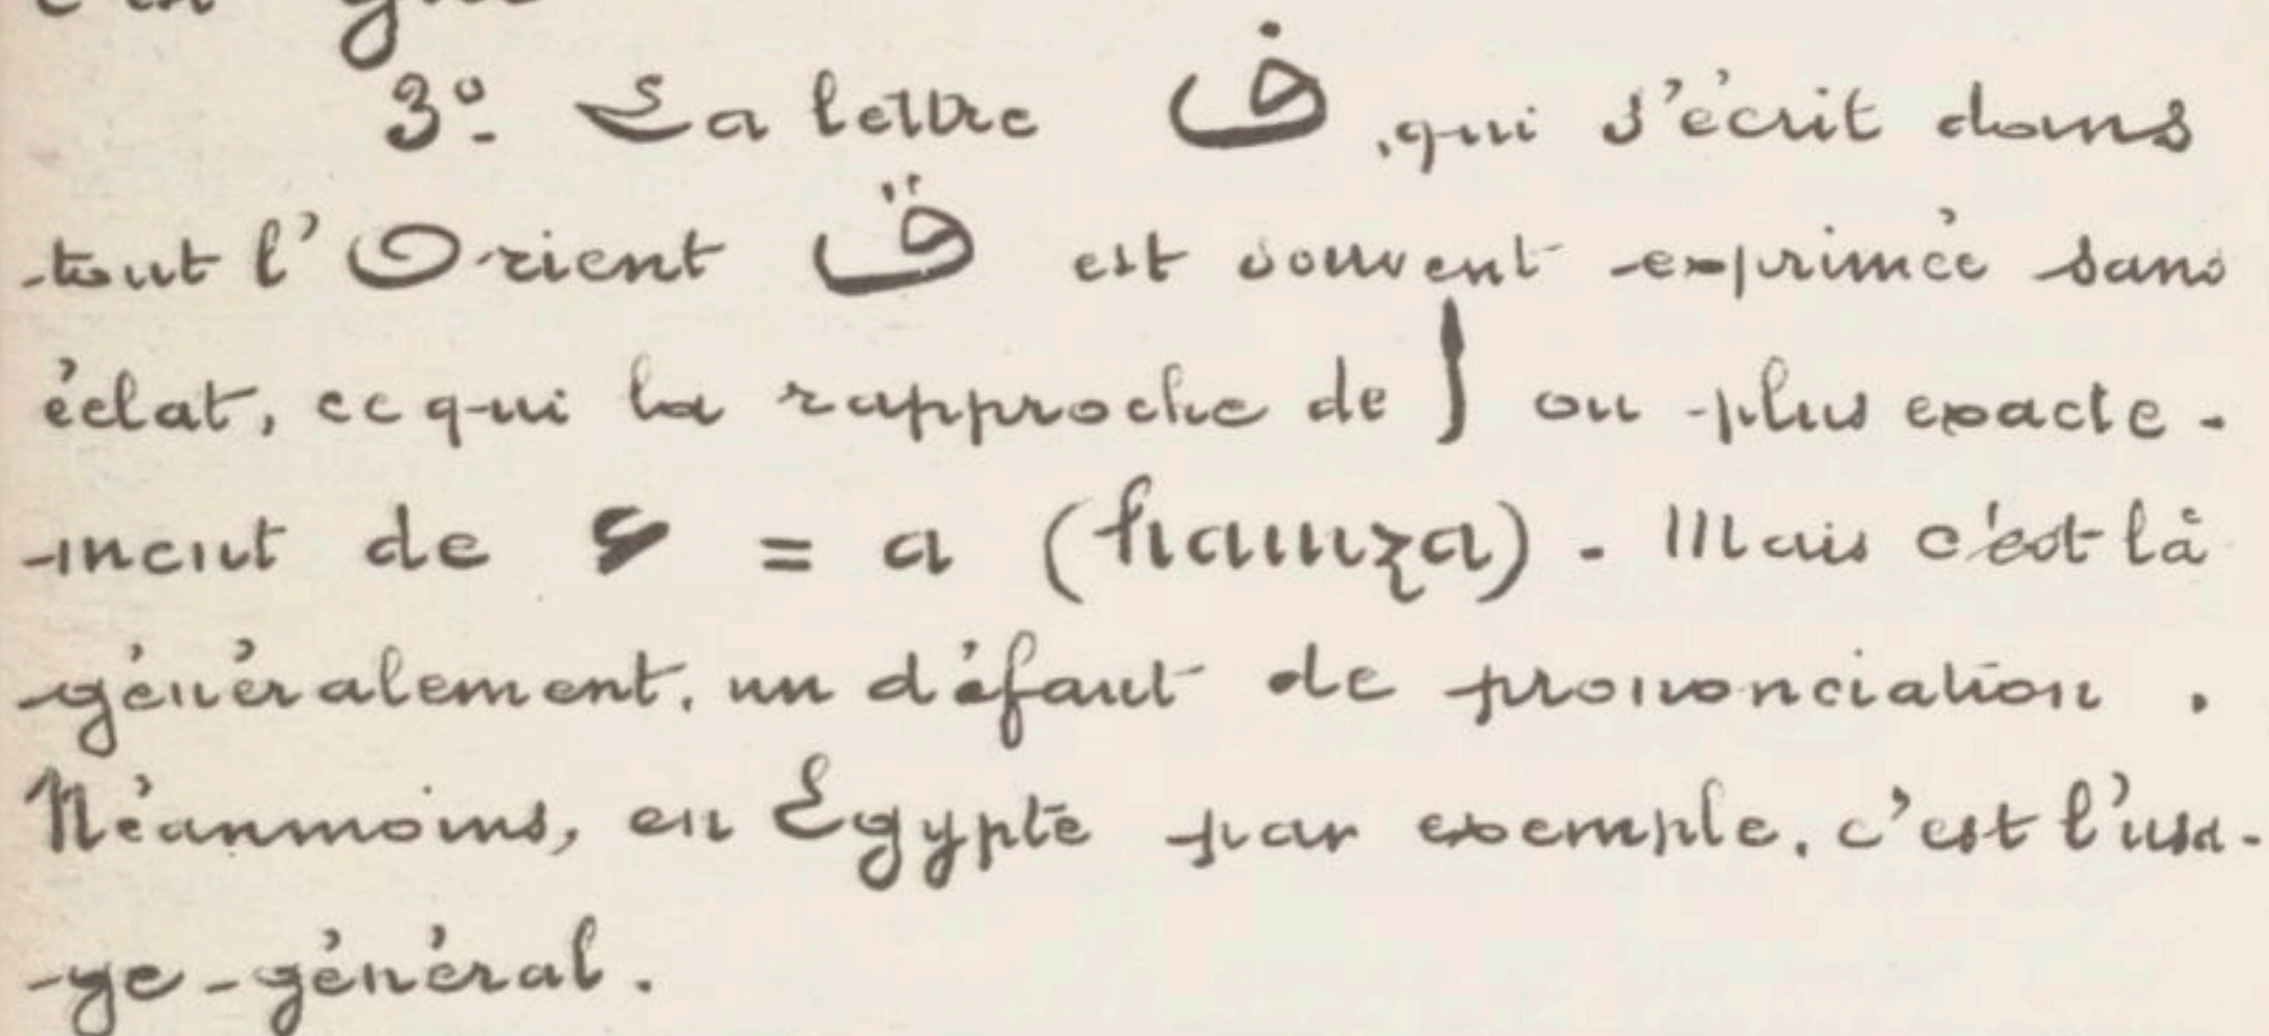 3º. La lettre ڧ, qui s'écrit dans
tout l'Orient ق est souvent exprimée sans
éclat, ce qui la rapproche de ا ou plus exacte-
-ment de ء = a (hamza). Mais c'est là
généralement, un défaut de prononciation.
Néanmoins, en Egypte par exemple, c'est l'usa-
-ge général.